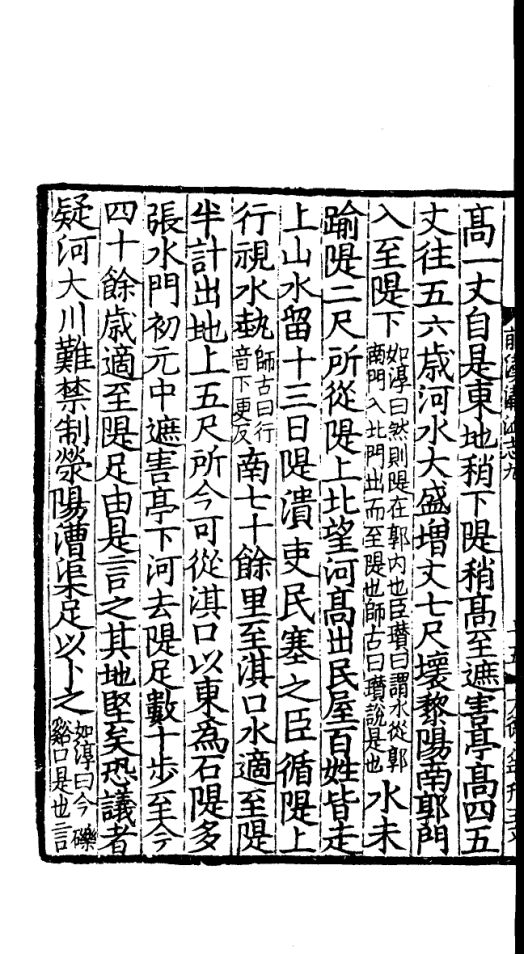 髙一丈自是東地稍下隄稍髙至遮害亭髙四五
丈往五六歳河水大盛増丈七尺壊黎陽南郭門
入至隄下如淳曰然則隄在郭内也臣瓚曰謂水從郭南門入北門出而至隄也師古曰瓚說是也水未
踰隄二尺所從隄上北望河髙出民屋百姓皆走
上山水留十三日隄潰吏民塞之臣循隄上
行視水埶師古曰行音下更反南七十餘里至淇口水適至隄
半計出地上五尺所今可從淇口以東為石隄多
張水門初元中遮害亭下河去隄足數十步至今
四十餘歳適至隄足由是言之其地堅矣恐議者
疑河大川難禁制滎陽漕渠足以卜之如淳曰今礫谿口是也言